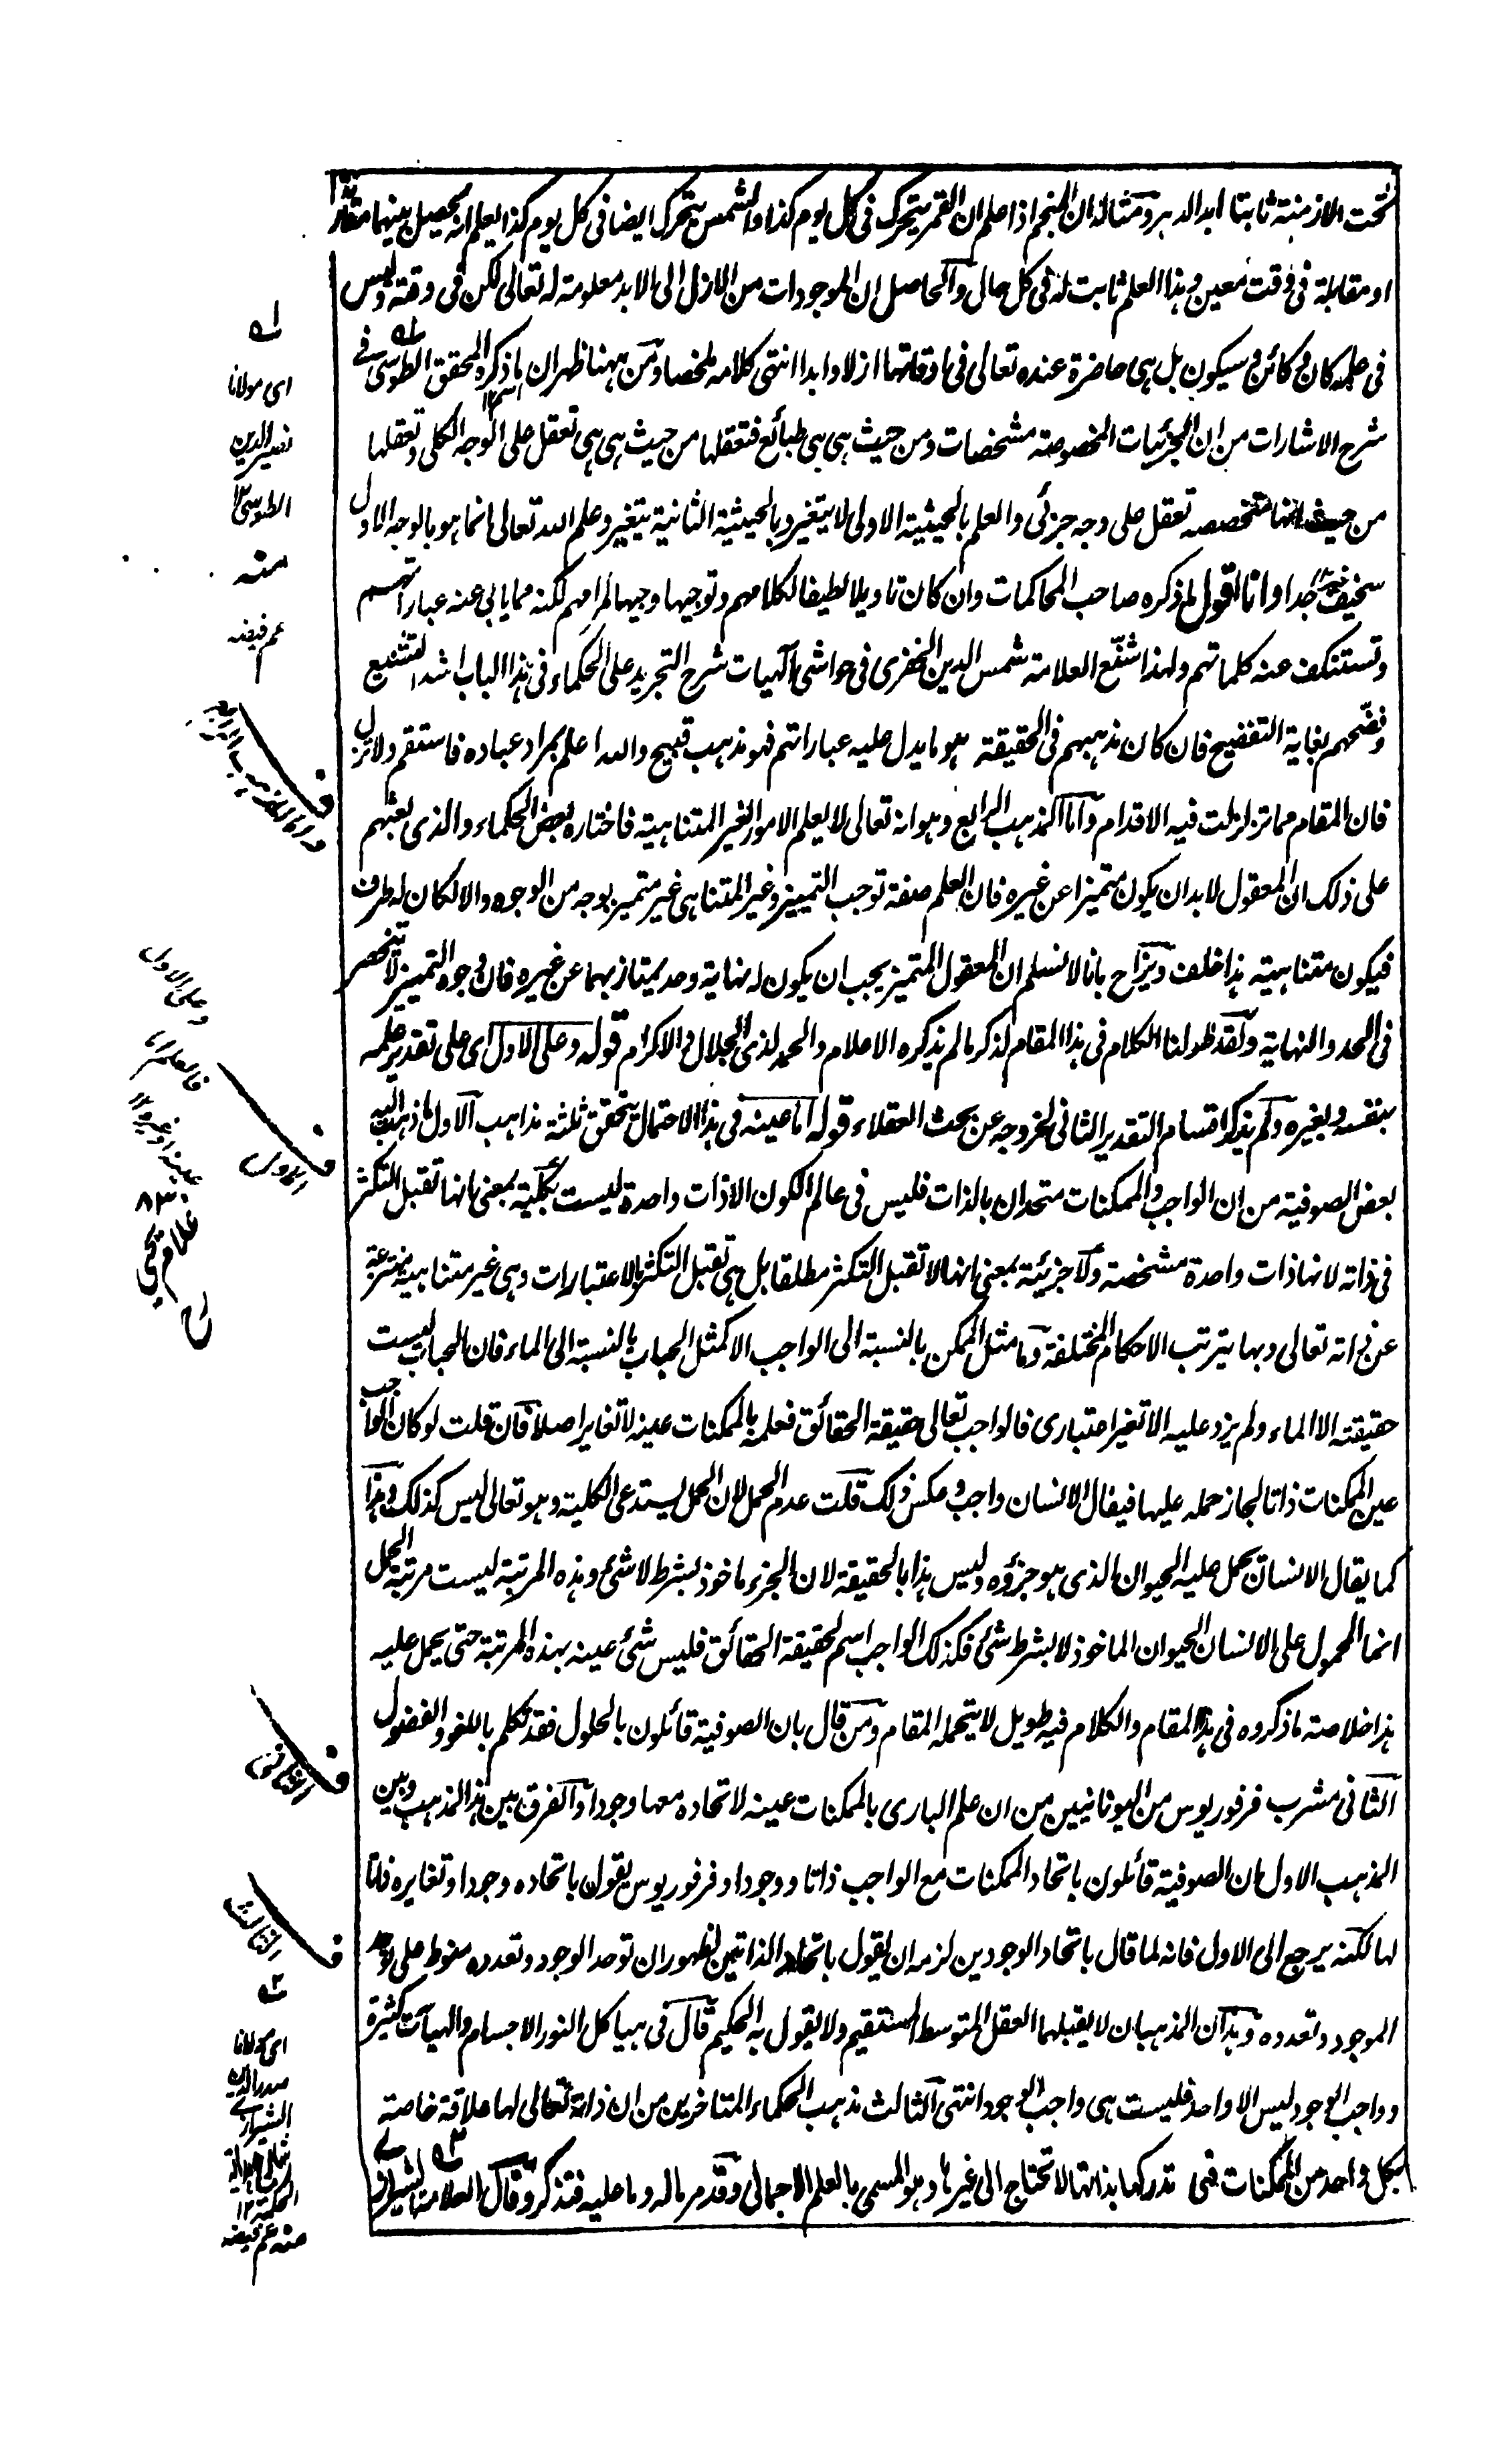 تحت الازمنة ثابتا ابد الدهر ومثاله ان المنجم اذا علم ان القمر يتحرك في كل يوم كذا والشمس يتحرك ايضا في كل يوم كذا يعلم انه يحصل بينهما مقارنة
او مقابلة في وقت معين وهذا العلم ثابت له في كل حال والحاصل ان الموجودات من الازل الى الابد معلومة له تعالى لكن في وقته وليس
في علمه كان وكائن وسيكون بل هي حاضرة عنده تعالى في اوقاتها ازلا وابدا انتهى كلامه ملخصا ومن ههنا ظهر ان ما ذكره المحقق الطوسي في
شرح الاشارات من ان الجزئيات المخصوصة مشخصات ومن حيث هي هي طبائع فتعقلها من حيث هي هي تعقل على الوجه الكلي وتعقلها
من حيث انها متخصصة تعقل على وجه جزئي والعلم بالحيثية الاولى لا يتغير وبالحيثية الثانية يتغير وعلم الله تعالى انما هو بالوجه الاول
سخيف جدا وانا اقول ما ذكره صاحب المحاكمات وان كان تاويلا لطيفا لكلامهم وتوجيها وجيها لمرامهم لكنه مما يابى عنه عباراتهم
وتستنكف عنه كلماتهم ولهذا شنع العلامة شمس الدين الخفري في حواشي الهيات شرح التجريد على الحكماء في هذا الباب اشد التشنيع
وفضحهم بغاية التفضيح فان كان مذهبهم في الحقيقة هو ما يدل عليه عباراتهم فهو مذهب قبيح والله اعلم بمراد عباده فاستقم ولا تزل
فان المقام مما تزلزلت فيه الاقدام واما المذهب الرابع وهو انه تعالى لا يعلم الامور الغير المتناهية فاختاره بعض الحكماء والذي بعثهم
على ذلك ان المعقول لا بد ان يكون متميزا عن غيره فان العلم صفة توجب التمييز وغير المتناهي غير متميز بوجه من الوجوه والا لكان له طرف
فيكون متناهية هذا خلف ويزاح بانا لا نسلم ان المعقول المتميز يجب ان يكون له نهاية وحد يمتاز بهما عن غيره فان وجوه التمييز لا تنحصر
في الحد والنهاية ولقد طولنا الكلام في هذا المقام لذكر ما لم يذكره الاعلام والحمد لذي الجلال والاكرام قوله وعلى الاول اى على تقدير علمه
بنفسه وبغيره ولم يذكر اقسام التقدير الثاني لخروجه عن بحث العقلاء قوله اما عينه في هذا الاحتمال يتحقق ثلثة مذاهب الاول ما ذهب اليه
بعض الصوفية من ان الواجب والممكنات متحدان بالذات فليس في عالم الكون الا ذات واحدة ليست بكلية بمعنى انها تقبل التكثر
في ذاته لانها ذات واحدة مشخصة ولا جزئية بمعنى انها لا تقبل التكثر مطلقا بل هي تقبل التكثر بالاعتبارات وهي غير متناهية منتزعة
عن ذاته تعالى وبها يترتب الاحكام المختلفة وما مثل الممكن بالنسبة الى الواجب الا كمثل الحباب بالنسبة الى الماء فان الحباب ليست
حقيقته الا الماء ولم يزد عليه الا تغير اعتباري فالواجب تعالى حقيقة الحقائق فعلمه بالممكنات عينه لا تغاير اصلا فان قلت لو كان الواجب
عين الممكنات ذاتا لجاز حمله عليها فيقال الانسان واجب وعكس ذلك قلت عدم الحمل لان الحمل يستدعي الكلية وهو تعالى ليس كذلك وهذا
كما يقال الانسان يحمل عليه الحيوان الذي هو جزؤه وليس هذا بالحقيقة لان الجزء ماخوذ بشرط لا شئ وهذه المرتبة ليست مرتبة الحمل
انما المحمول على الانسان الحيوان الماخوذ لا بشرط شئ فكذلك الواجب اسم لحقيقة الحقائق فليس شئ عينه بهذه المرتبة حتى يحمل عليه
هذا خلاصة ما ذكروه في هذا المقام والكلام فيه طويل لا يتحمله المقام ومن قال بان الصوفية قائلون بالحلول فقد تكلم باللغو والفضول
الثاني مشرب فرفوريوس من اليونانيين من ان علم الباري بالممكنات عينه لاتحاده معها وجودا والفرق بين هذا المذهب وبين
المذهب الاول ان الصوفية قائلون باتحاد الممكنات مع الواجب ذاتا ووجودا وفرفوريوس يقول باتحاده وجودا وتغايره ذاتا
لها لكنه يرجع الى الاول فانه لما قال باتحاد الوجودين لزمه ان يقول باتحاد الذاتين لظهور ان توحد الوجود وتعدده منوط على توحد
الموجود وتعدده وهذان المذهبان لا يقبلهما العقل المتوسط المستقيم ولا يقول به الحكيم قال في هياكل النور الاجسام والهيآت كثيرة
وواجب الوجود ليس الا واحد فليست هي واجب الوجود انتهى الثالث مذهب الحكماء المتاخرين من ان ذاته تعالى لها علاقة خاصة
بكل واحد من الممكنات فهي تدركها بذاتها لا تحتاج الى غيرها وهو المسمى بالعلم الاجمالي وقد مر ماله وما عليه فتذكر وقال العلامة الشيرازي
اى مولانا
نصير الدين
الطوسي ١٢
منه
عم فيضه
وعلى الاول
الاول
غلام يحيى
الثاني
الثالث
اى مولانا
صدر الدين
الشيرازي
الحكمة ١٢
منه عم فيضه